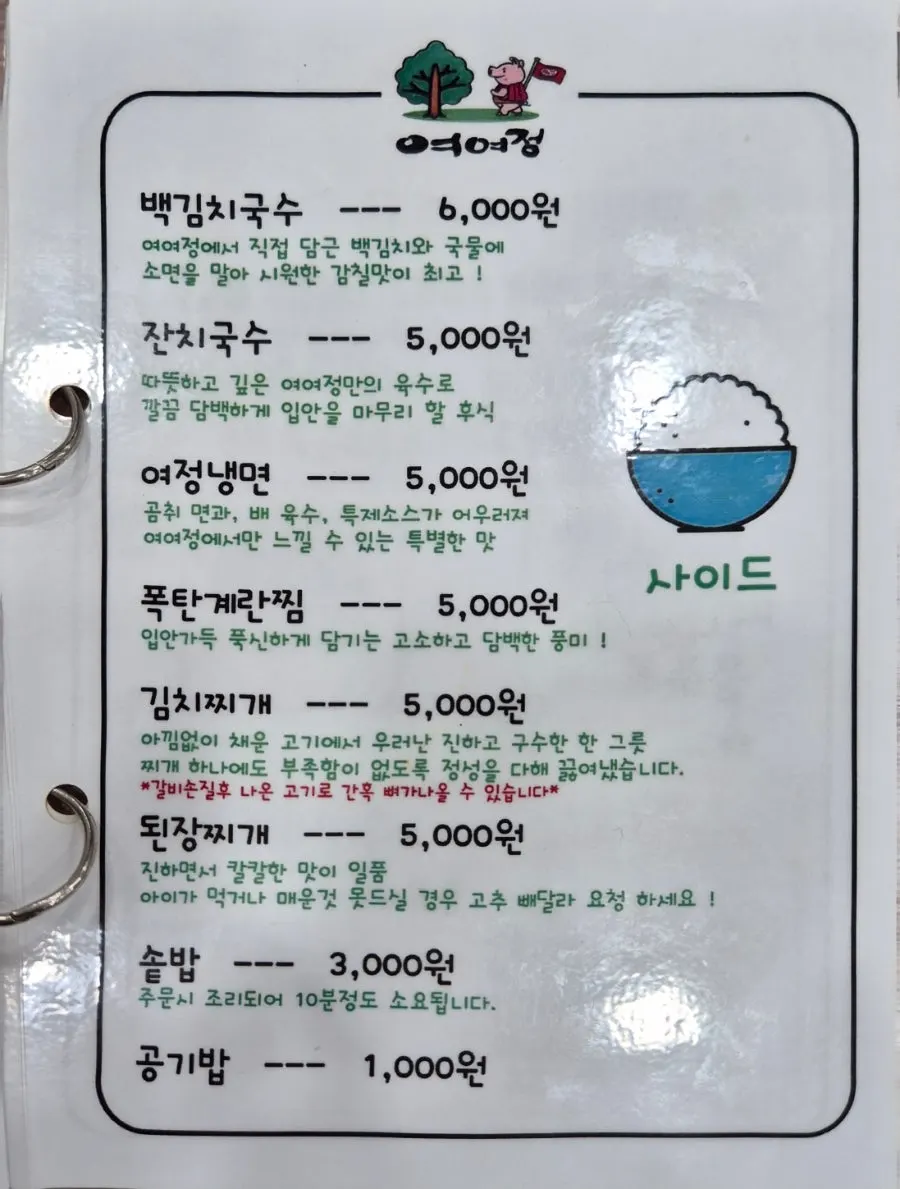 여여정
백김치국수 --- 6,000원
여여정에서 직접 담근 백김치와 국물에
소면을 말아 시원한 감칠맛이 최고 !
잔치국수 --- 5,000원
따뜻하고 깊은 여여정만의 육수로
깔끔 담백하게 입안을 마무리 할 후식
여정냉면 --- 5,000원
곰취 면과, 배 육수, 특제소스가 어우러져
여여정에서만 느낄 수 있는 특별한 맛
사이드
폭탄계란찜 --- 5,000원
입안가득 푹신하게 담기는 고소하고 담백한 풍미 !
김치찌개 --- 5,000원
아낌없이 채운 고기에서 우러난 진하고 구수한 한 그릇
찌개 하나에도 부족함이 없도록 정성을 다해 끓여냈습니다.
*갈비손질후 나온 고기로 간혹 뼈가나올 수 있습니다*
된장찌개 --- 5,000원
진하면서 칼칼한 맛이 일품
아이가 먹거나 매운것 못드실 경우 고추 빼달라 요청 하세요 !
솥밥 --- 3,000원
주문시 조리되어 10분정도 소요됩니다.
공기밥 --- 1,000원